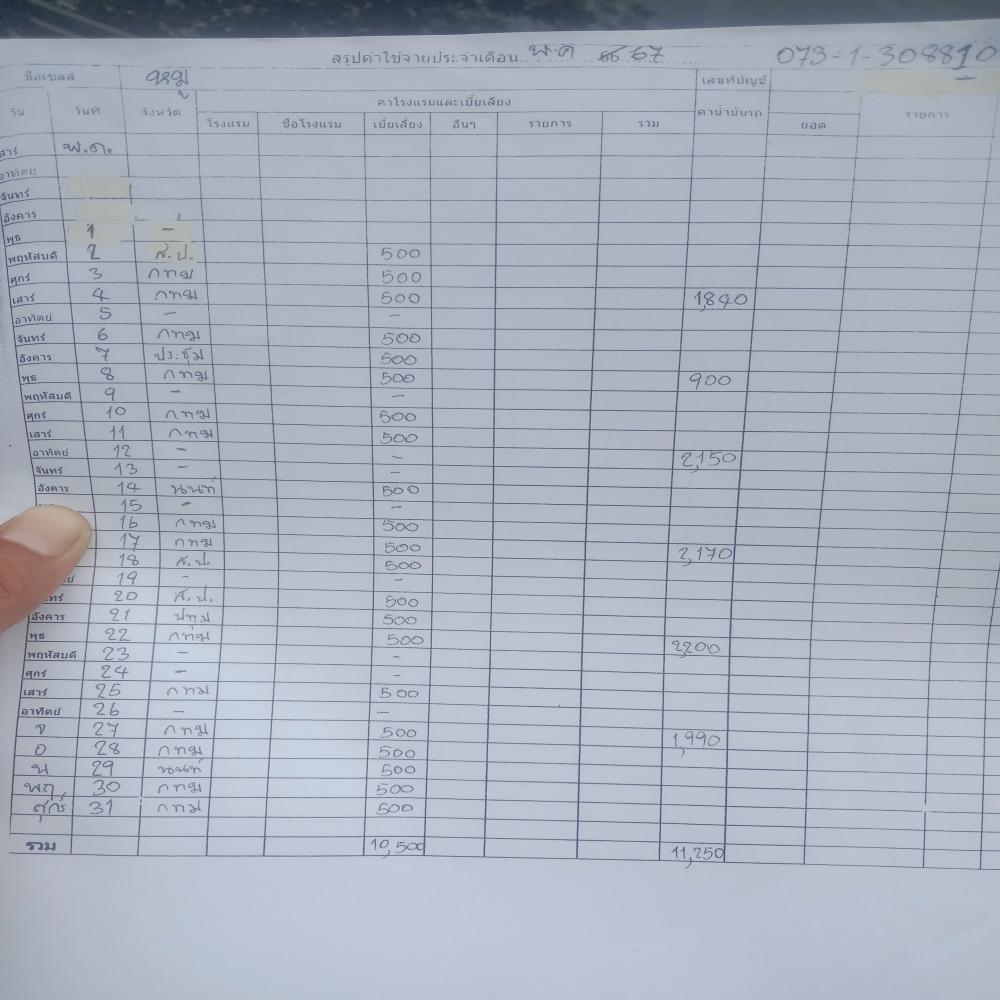 สรุปค่าใช้จ่ายประจำเดือน พ.ค 67 073-1-308810
ชื่อเซลล์ หมู เลขที่บัญชี
วัน วันที่ จังหวัด ค่าโรงแรมและเบี้ยเลี้ยง ค่าน้ำมันรถ รายการ
โรงแรม ชื่อโรงแรม เบี้ยเลี้ยง อื่นๆ รายการ รวม ยอด
เสาร์ พ.ค.
อาทิตย์
จันทร์
อังคาร
พุธ 1 -
พฤหัสบดี 2 ส.ป. 500
ศุกร์ 3 กทม 500
เสาร์ 4 กทม 500 1,840
อาทิตย์ 5 - -
จันทร์ 6 กทม 500
อังคาร 7 ประชุม 500
พุธ 8 กทม 500 900
พฤหัสบดี 9 - -
ศุกร์ 10 กทม 500
เสาร์ 11 กทม 500
อาทิตย์ 12 - - 2,150
จันทร์ 13 - -
อังคาร 14 นนท์ 500
15 - -
16 กทม 500
17 กทม 500 2,170
18 ส.ป. 500
19 - -
20 ส.ป. 500
อังคาร 21 ปทุม 500
พุธ 22 กทม 500 2,200
พฤหัสบดี 23 - -
ศุกร์ 24 - -
เสาร์ 25 กทม 500
อาทิตย์ 26 - -
จ 27 กทม 500 1,990
อ 28 กทม 500
29 นนท์ 500
พฤ 30 กทม 500
ศุกร์ 31 กทม 500
รวม 10,500 11,250